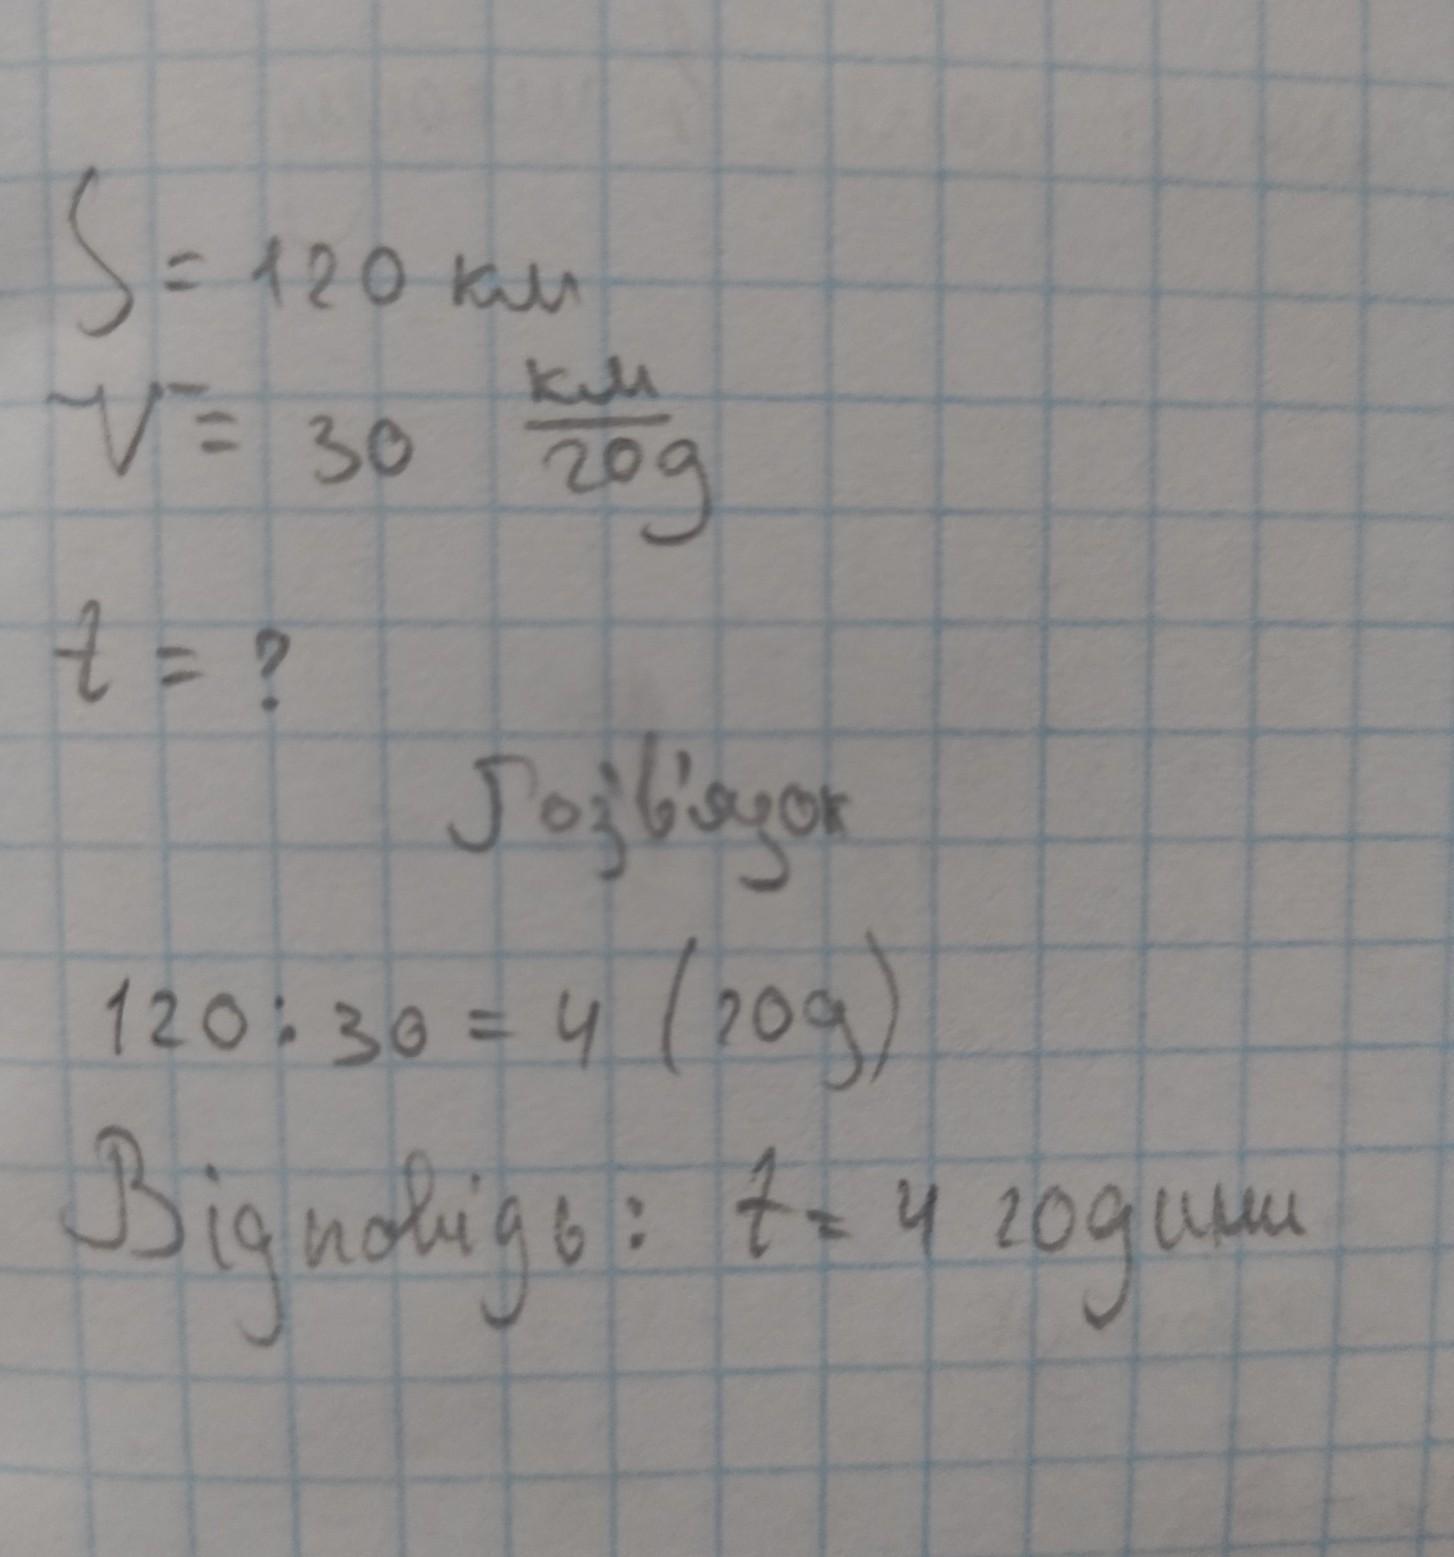 S = 120 км
V = 30 км/год
t = ?
Розв'язок
120 : 30 = 4 (год)
Відповідь: t = 4 години